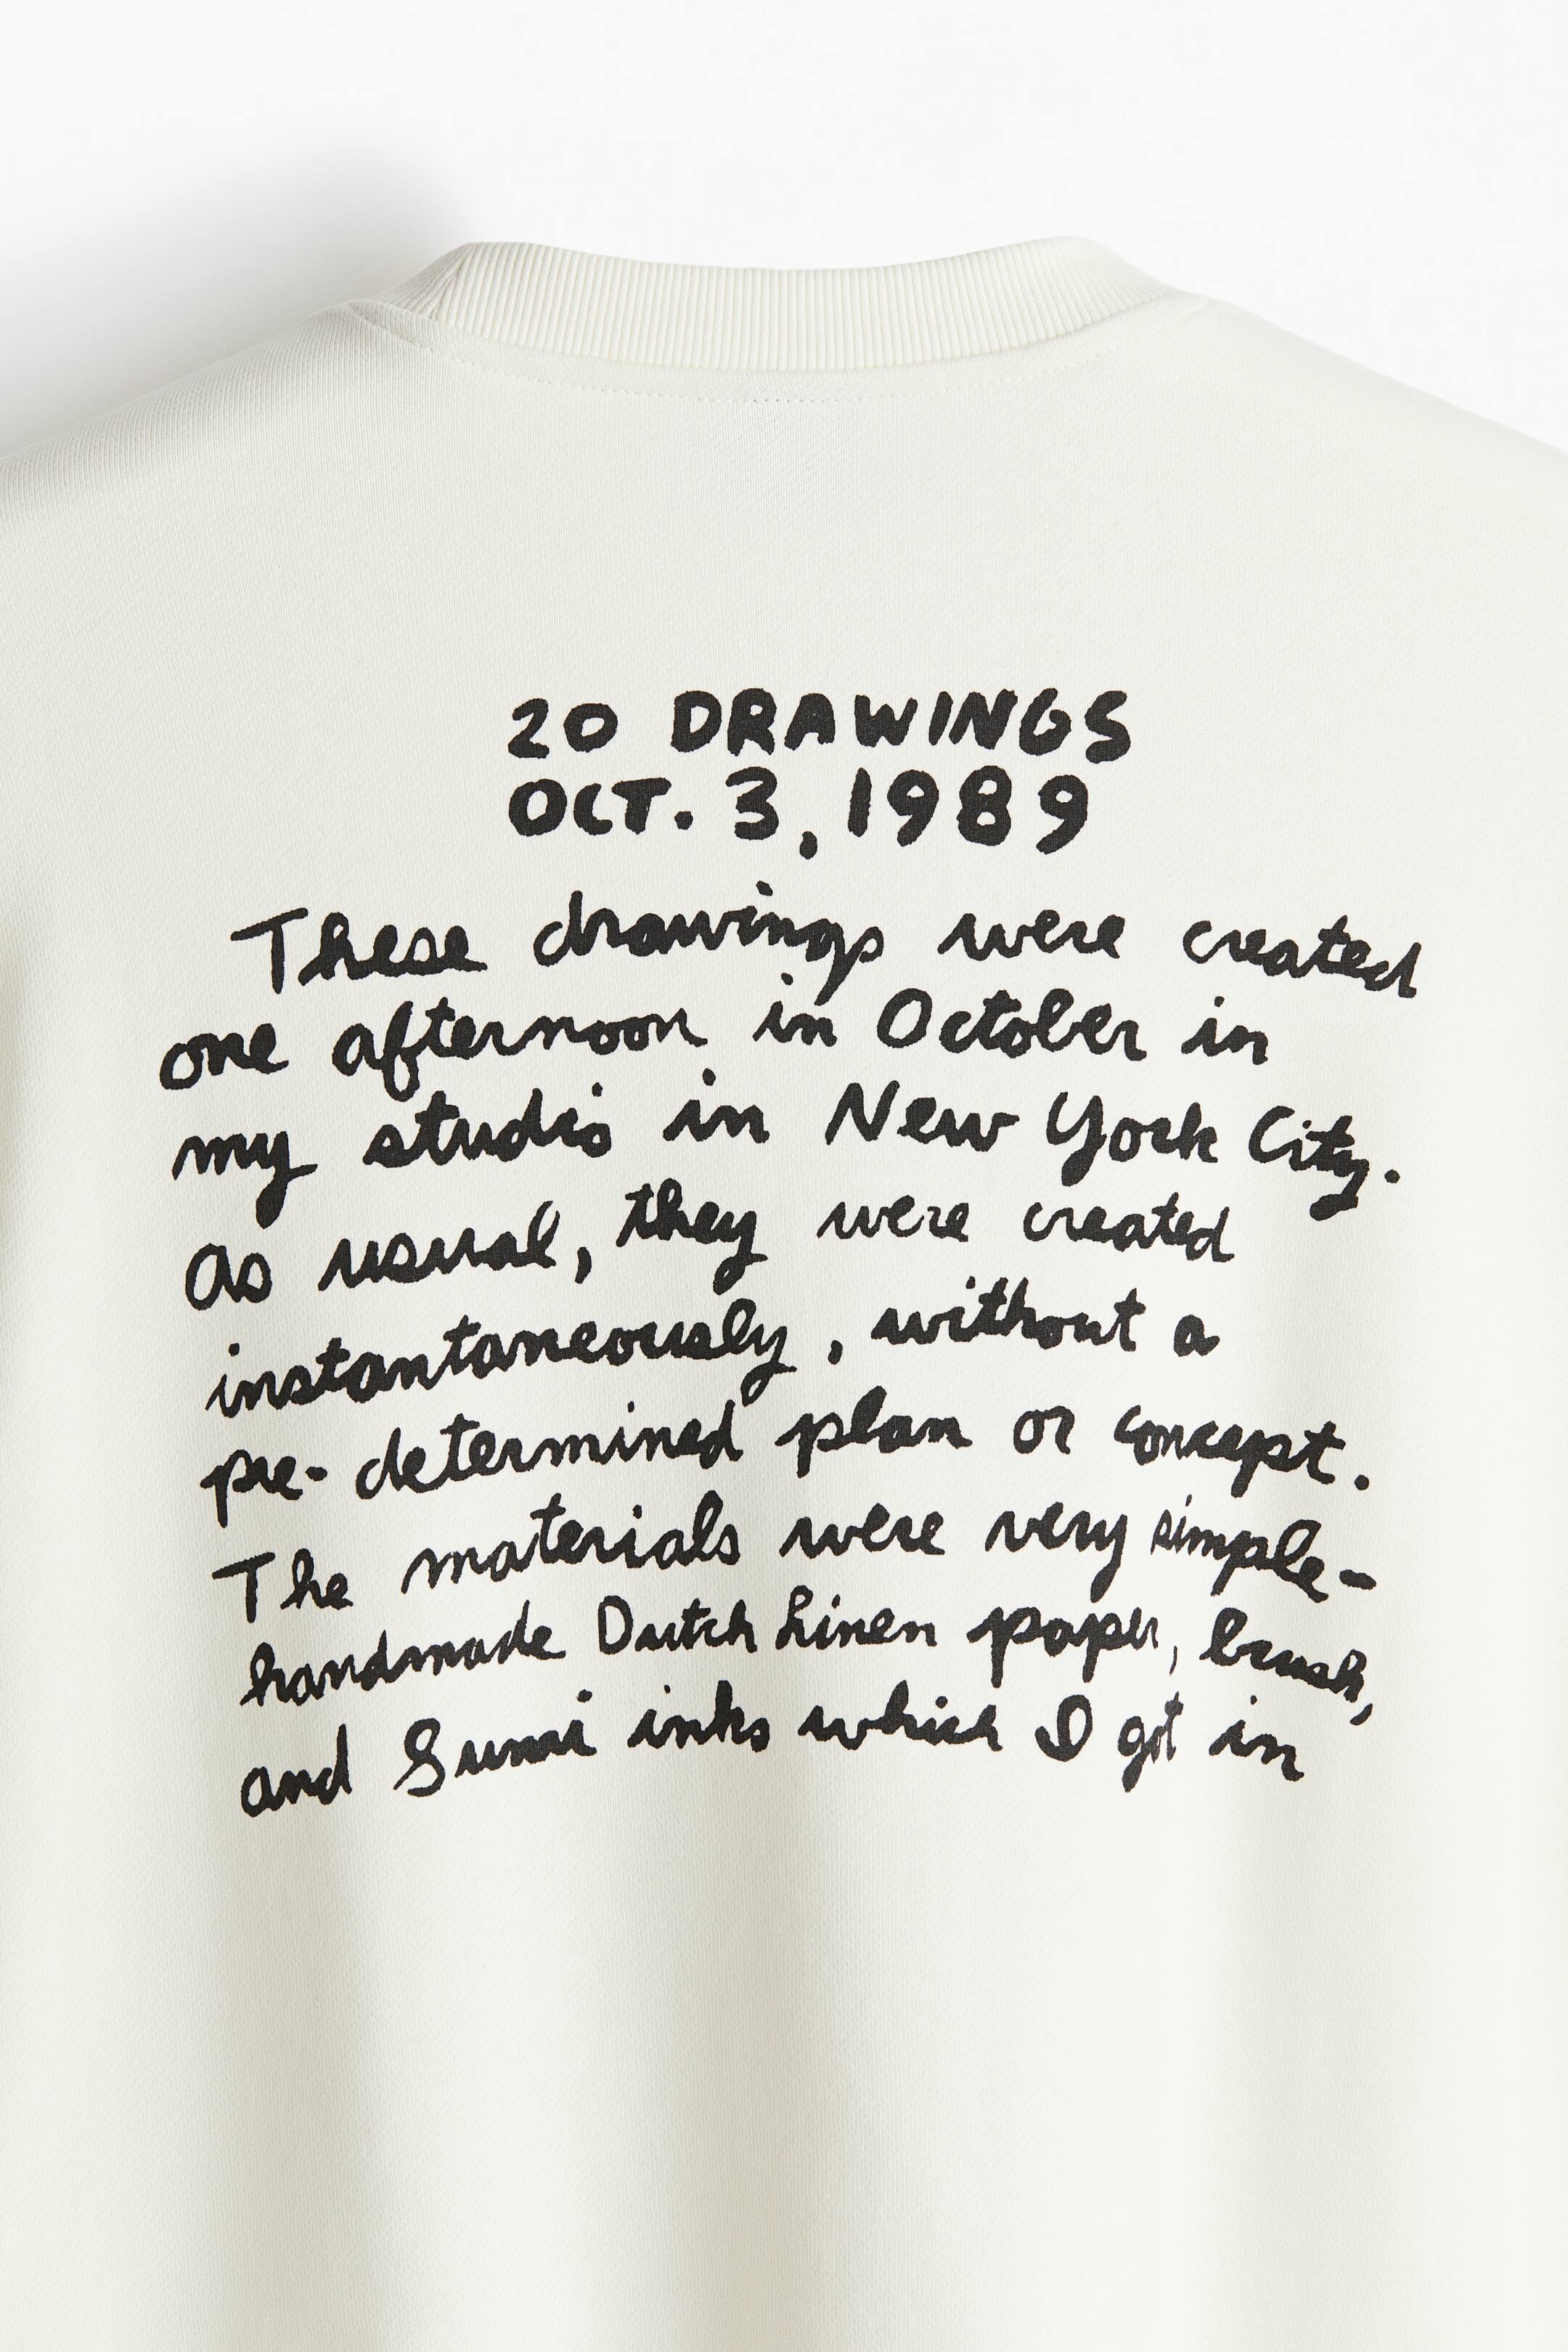 20 DRAWINGS
OCT. 3, 1989
These drawings were created
one afternoon in October in
my studio in New York City.
As usual, they were created
instantaneously, without a
pre-determined plan or concept.
The materials were very simple-
handmade Dutch Linen paper, brush,
and Sumi inks which I got in